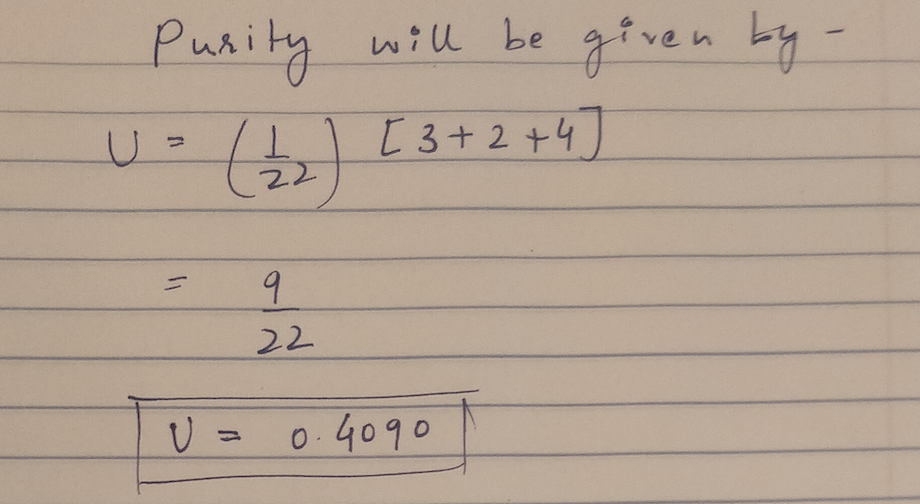 Purity will be given by -
U = (1/22) [3+2+4]
= 9/22
U = 0.4090